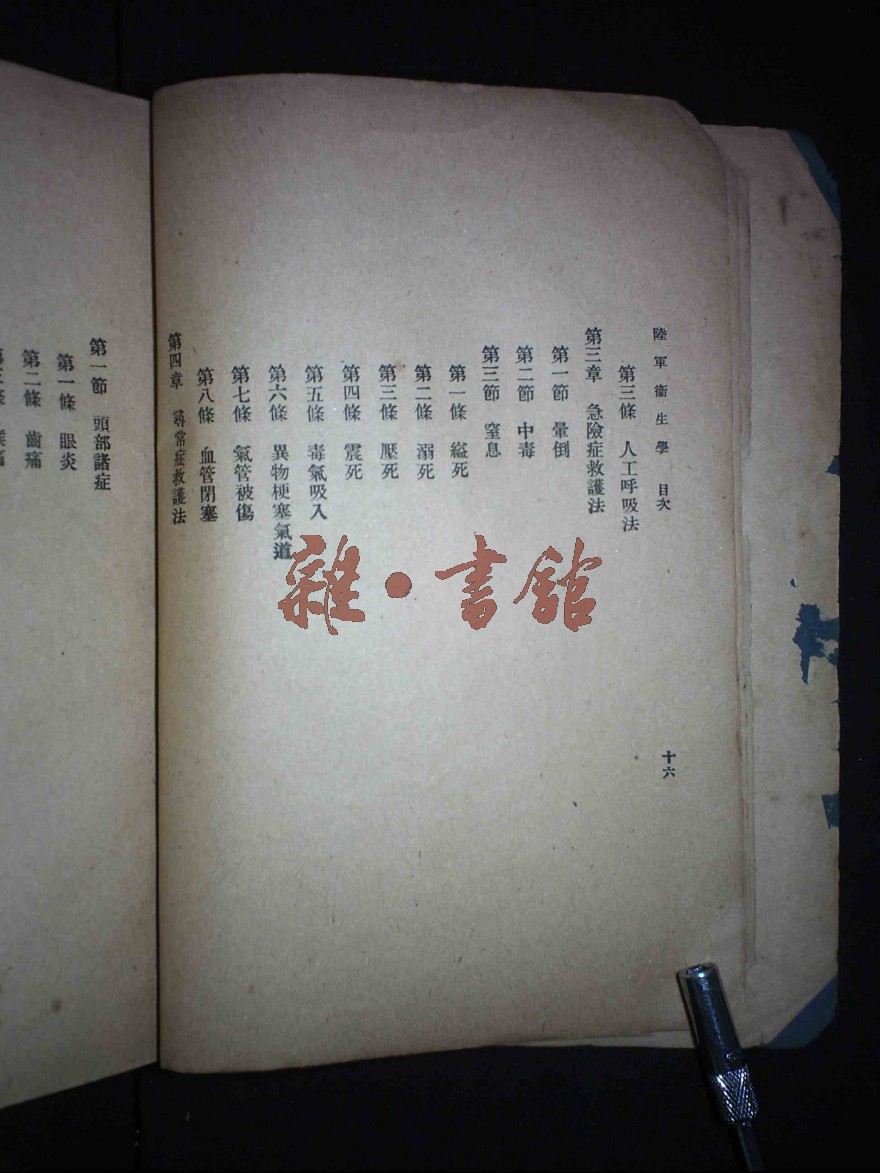 陸軍衞生學 目次
第三條 人工呼吸法
第三章 急險症救護法
第一節 暈倒
第二節 中毒
第三節 窒息
第一條 縊死
第二條 溺死
第三條 壓死
第四條 震死
第五條 毒氣吸入
第六條 異物梗塞氣道
第七條 氣管被傷
第八條 血管閉塞
第四章 尋常症救護法
十六
第一節 頭部諸症
第一條 眼炎
第二條 齒痛
雜·書館